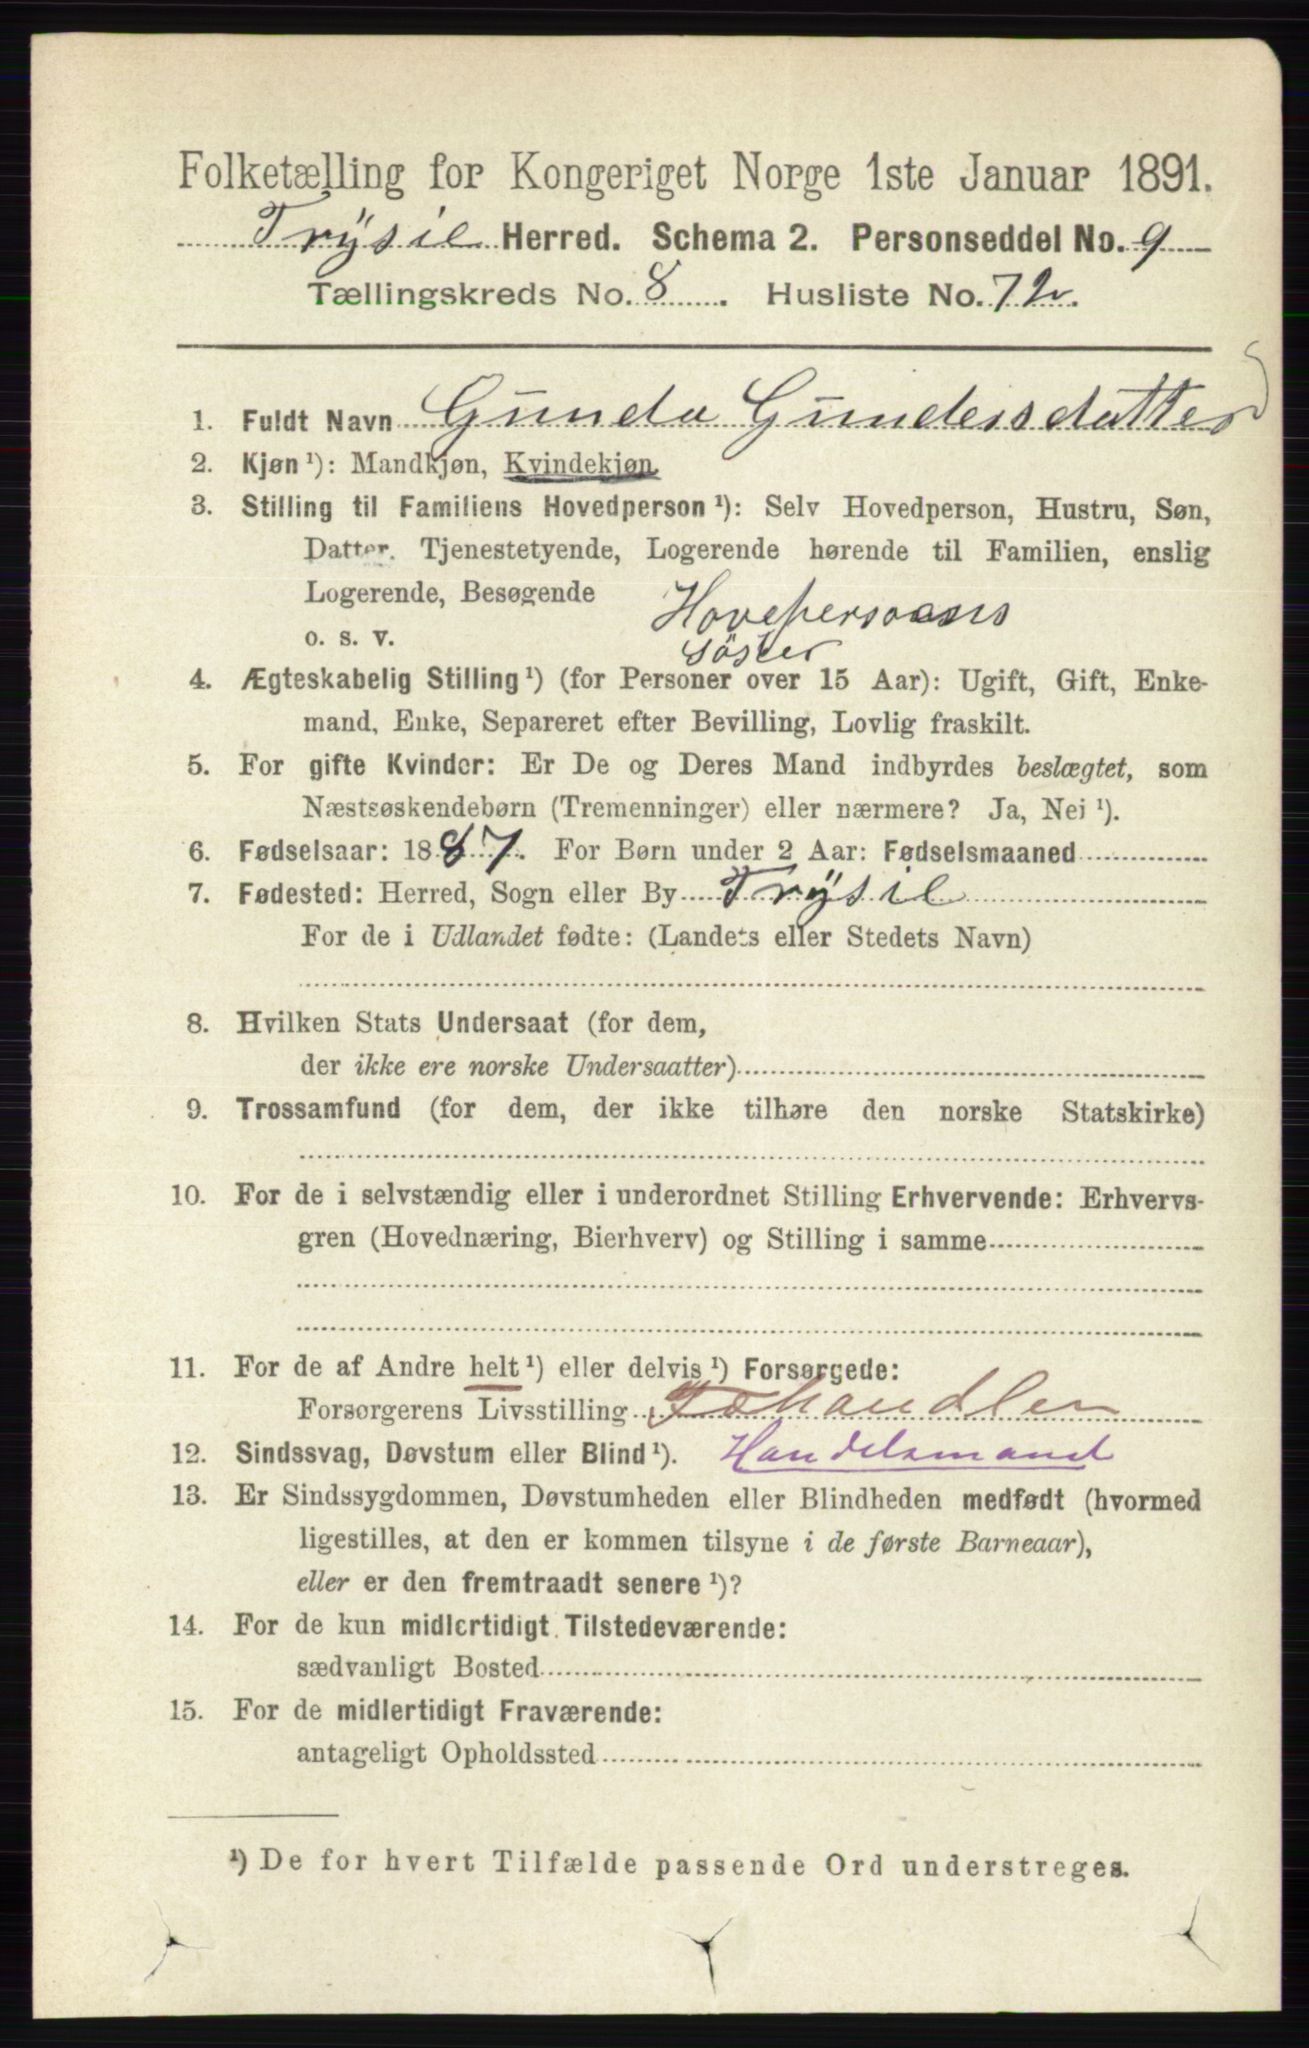 Folketælling for Kongeriget Norge 1ste Januar 1891.
Trysil Herred. Schema 2. Personseddel No. 9
Tællingskreds No. 8. Husliste No. 72.
1. Fuldt Navn Gunda Gundersdatter
2. Kjøn ¹): Mandkjøn, Kvindekjøn
3. Stilling til Familiens Hovedperson ¹): Selv Hovedperson, Hustru, Søn,
Datter, Tjenestetyende, Logerende hørende til Familien, enslig
Logerende, Besøgende Hovepersoens
o. s. v. søster
4. Ægteskabelig Stilling ¹) (for Personer over 15 Aar): Ugift, Gift, Enke-
mand, Enke, Separeret efter Bevilling, Lovlig fraskilt.
5. For gifte Kvinder: Er De og Deres Mand indbyrdes beslægtet, som
Næstsøskendebørn (Tremenninger) eller nærmere? Ja, Nei ¹).
6. Fødselsaar: 1887. For Børn under 2 Aar: Fødselsmaaned
7. Fødested: Herred, Sogn eller By Trysil
For de i Udlandet fødte: (Landets eller Stedets Navn)
8. Hvilken Stats Undersaat (for dem,
der ikke ere norske Undersaatter)
9. Trossamfund (for dem, der ikke tilhøre den norske Statskirke)
10. For de i selvstændig eller i underordnet Stilling Erhvervende: Erhvervs-
gren (Hovednæring, Bierhverv) og Stilling i samme
11. For de af Andre helt ¹) eller delvis ¹) Forsørgede:
Forsørgerens Livsstilling Fæhandler
12. Sindssvag, Døvstum eller Blind ¹). Handelsmand
13. Er Sindssygdommen, Døvstumheden eller Blindheden medfødt (hvormed
ligestilles, at den er kommen tilsyne i de første Barneaar),
eller er den fremtraadt senere ¹)?
14. For de kun midlertidigt Tilstedeværende:
sædvanligt Bosted
15. For de midlertidigt Fraværende:
antageligt Opholdssted
¹) De for hvert Tilfælde passende Ord understreges.